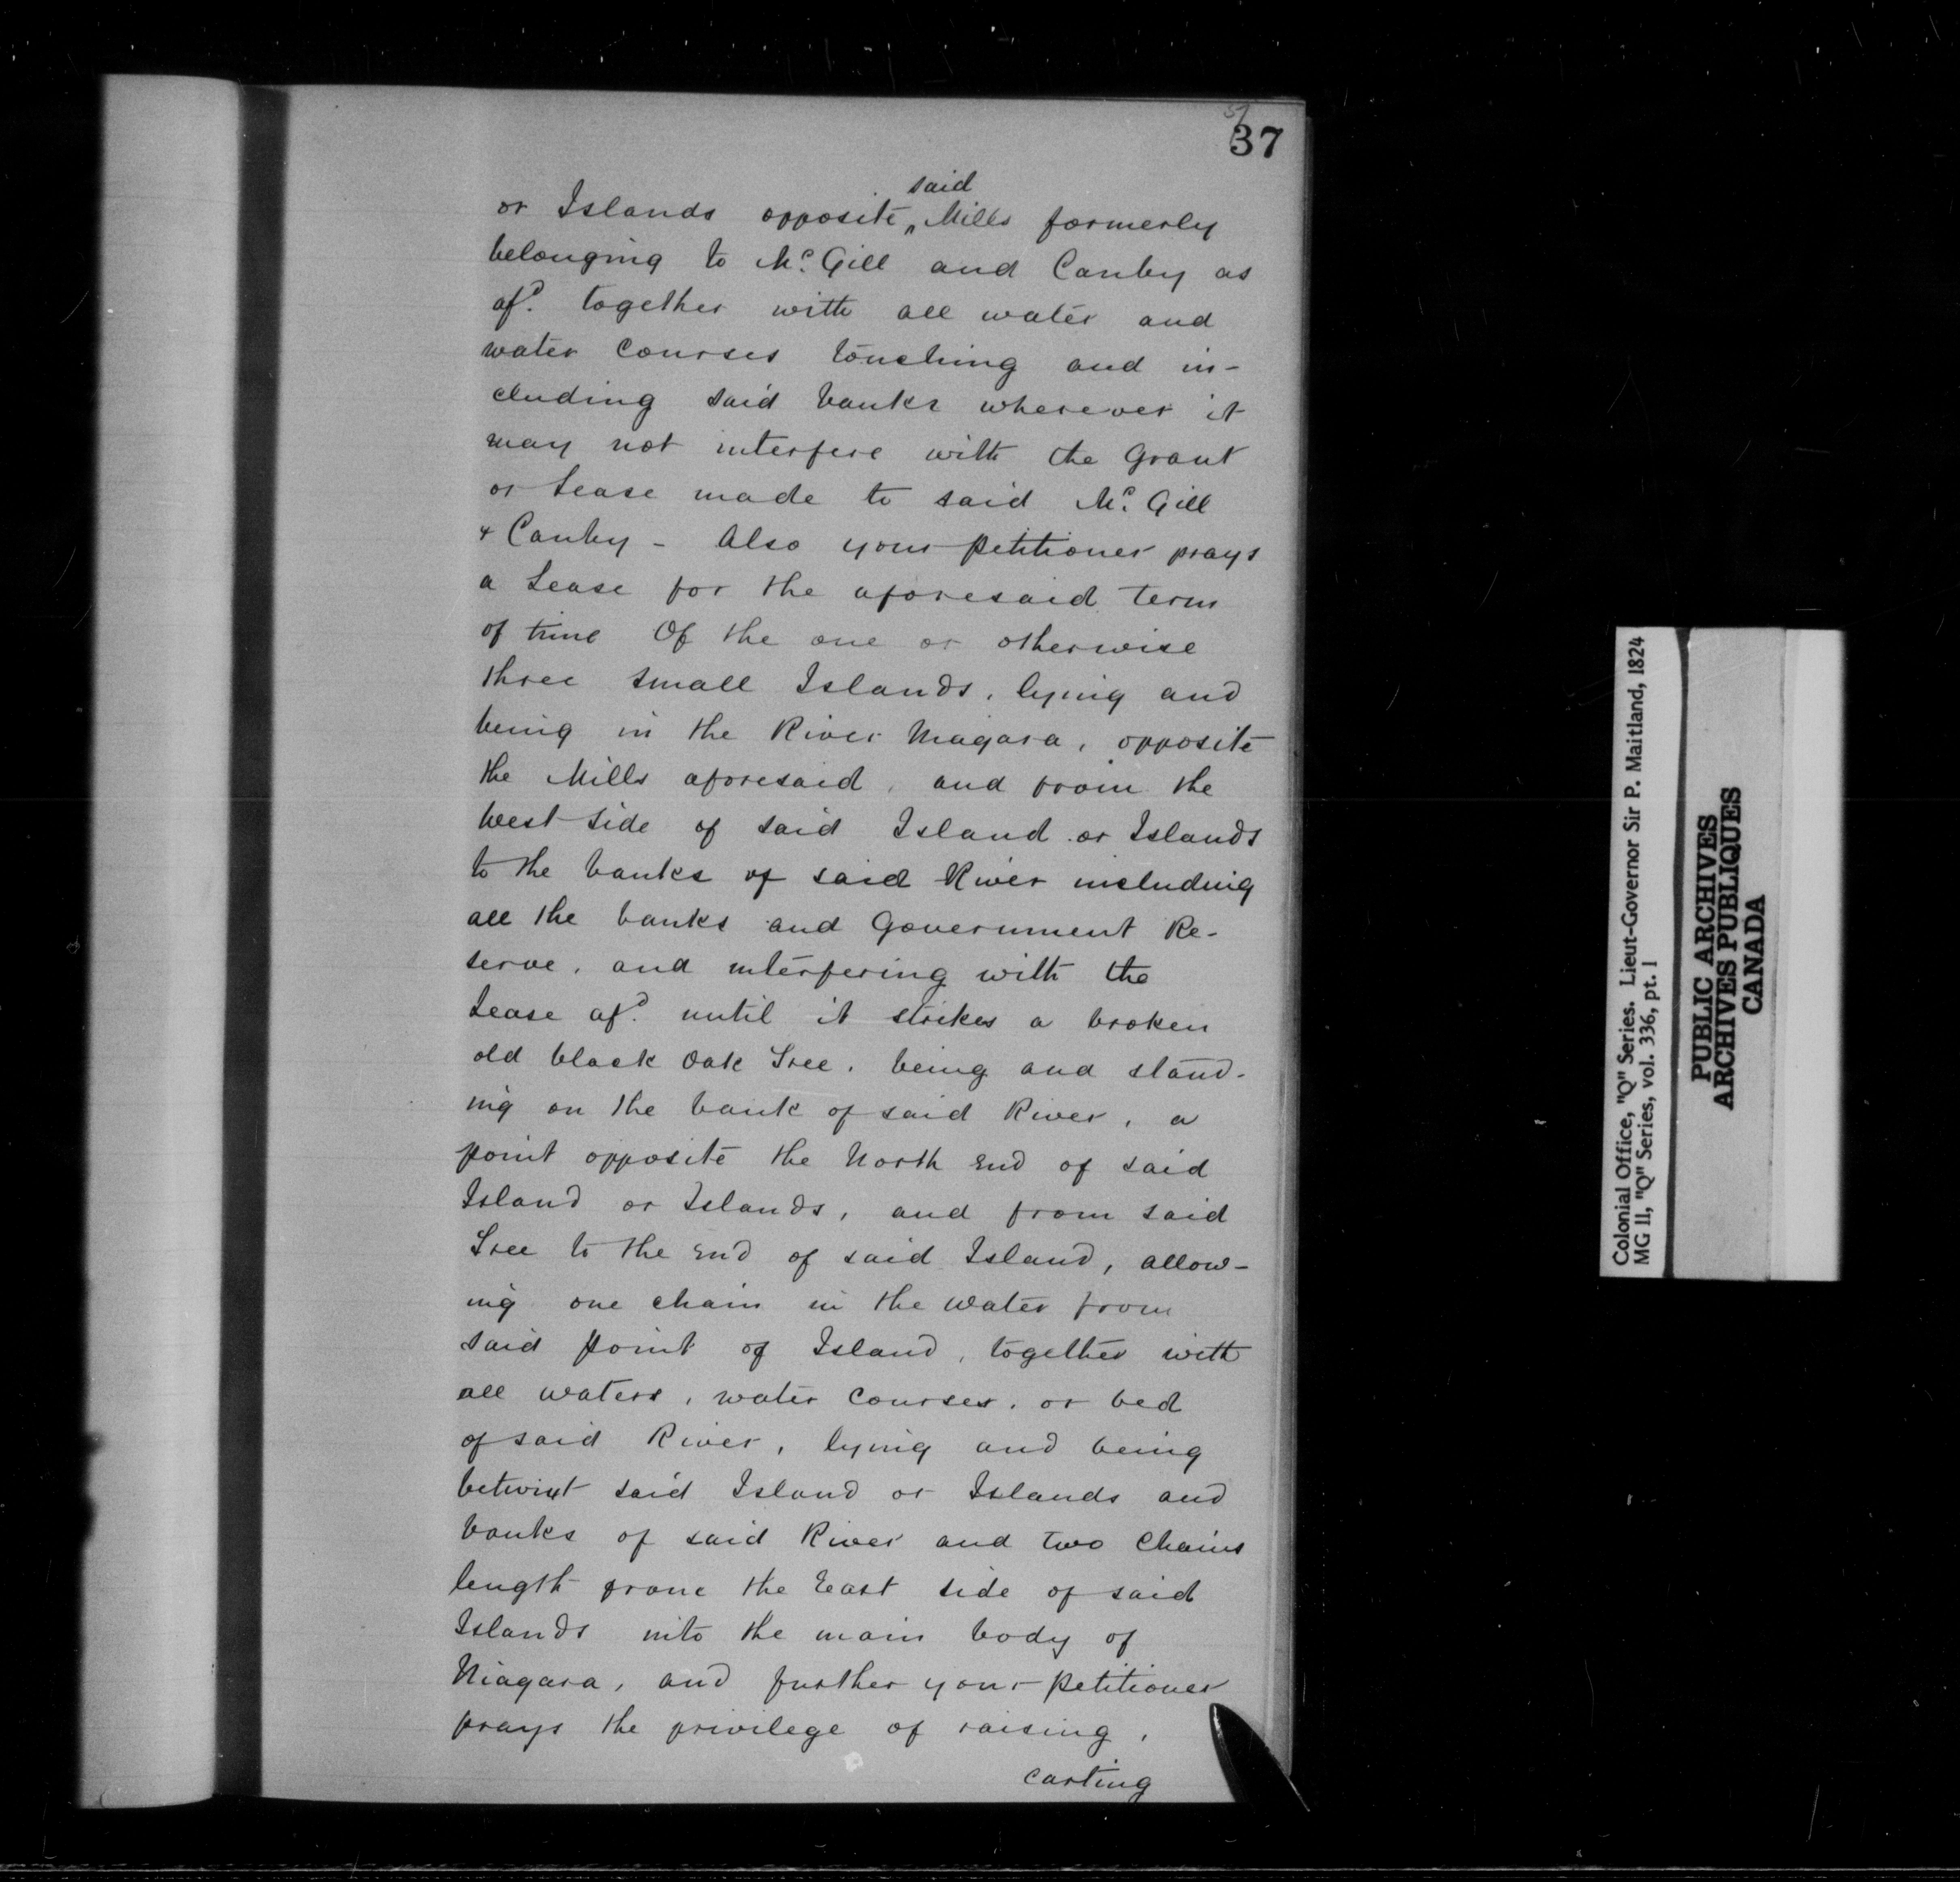 37
37
said
or Islands opposite ^ Mills formerly
belonging to Mc. Gill and Canby as
afd. together with all water and
water Courses touching and in-
cluding said banks wherever it
may not interfere with the Grant
or Lease made to said Mc. Gill
& Canby - Also your petitioner prays
a Lease for the aforesaid term
of time Of the one or otherwise
three small Islands, lying and
being in the River Niagara, opposite
the Mills aforesaid, and from the
West side of said Island or Islands
to the banks of said River including
all the banks and Government Re-
serve, and interfering with the
Lease afd. until it strikes a broken
old black Oak Tree, being and stand-
ing on the bank of said River, a
point opposite the North End of said
Island or Islands, and from said
Tree to the End of said Island, allow-
ing one chain in the water from
said point of Island, together with
all waters, water courses, or bed
of said River, lying and being
betwixt said Island or Islands and
banks of said River and two Chains
length from the East side of said
Islands into the main body of
Niagara, and further your petitioner
prays the privilege of raising,
carting
Colonial Office, "Q" Series. Lieut-Governor Sir P. Maitland, 1824
MG 11, "Q" Series, vol. 336, pt. 1
PUBLIC ARCHIVES
ARCHIVES PUBLIQUES
CANADA